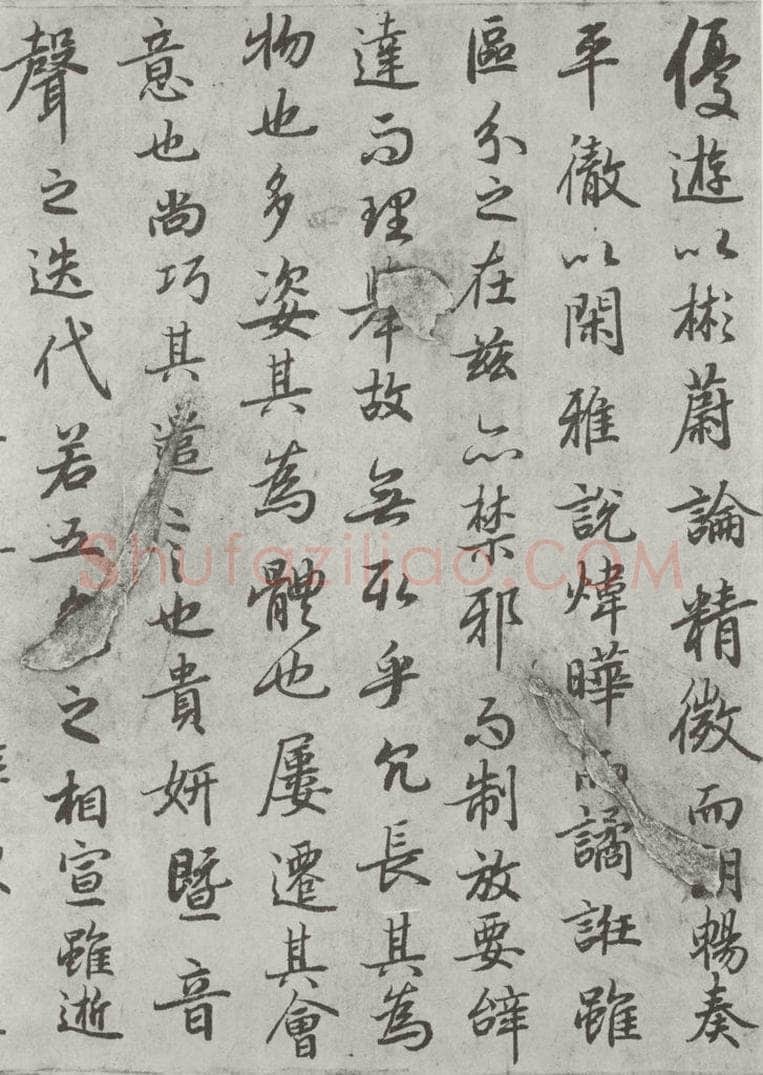 優遊以彬蔚論精微而朗暢奏
平徹以閑雅說煒曄而譎誑雖
區分之在茲亦禁邪而制放要辭
達而理舉故無取乎冗長其為
物也多姿其為體也屢遷其會
意也尚巧其遣言也貴妍暨音
聲之迭代若五色之相宣雖逝
Shufaziliao.COM